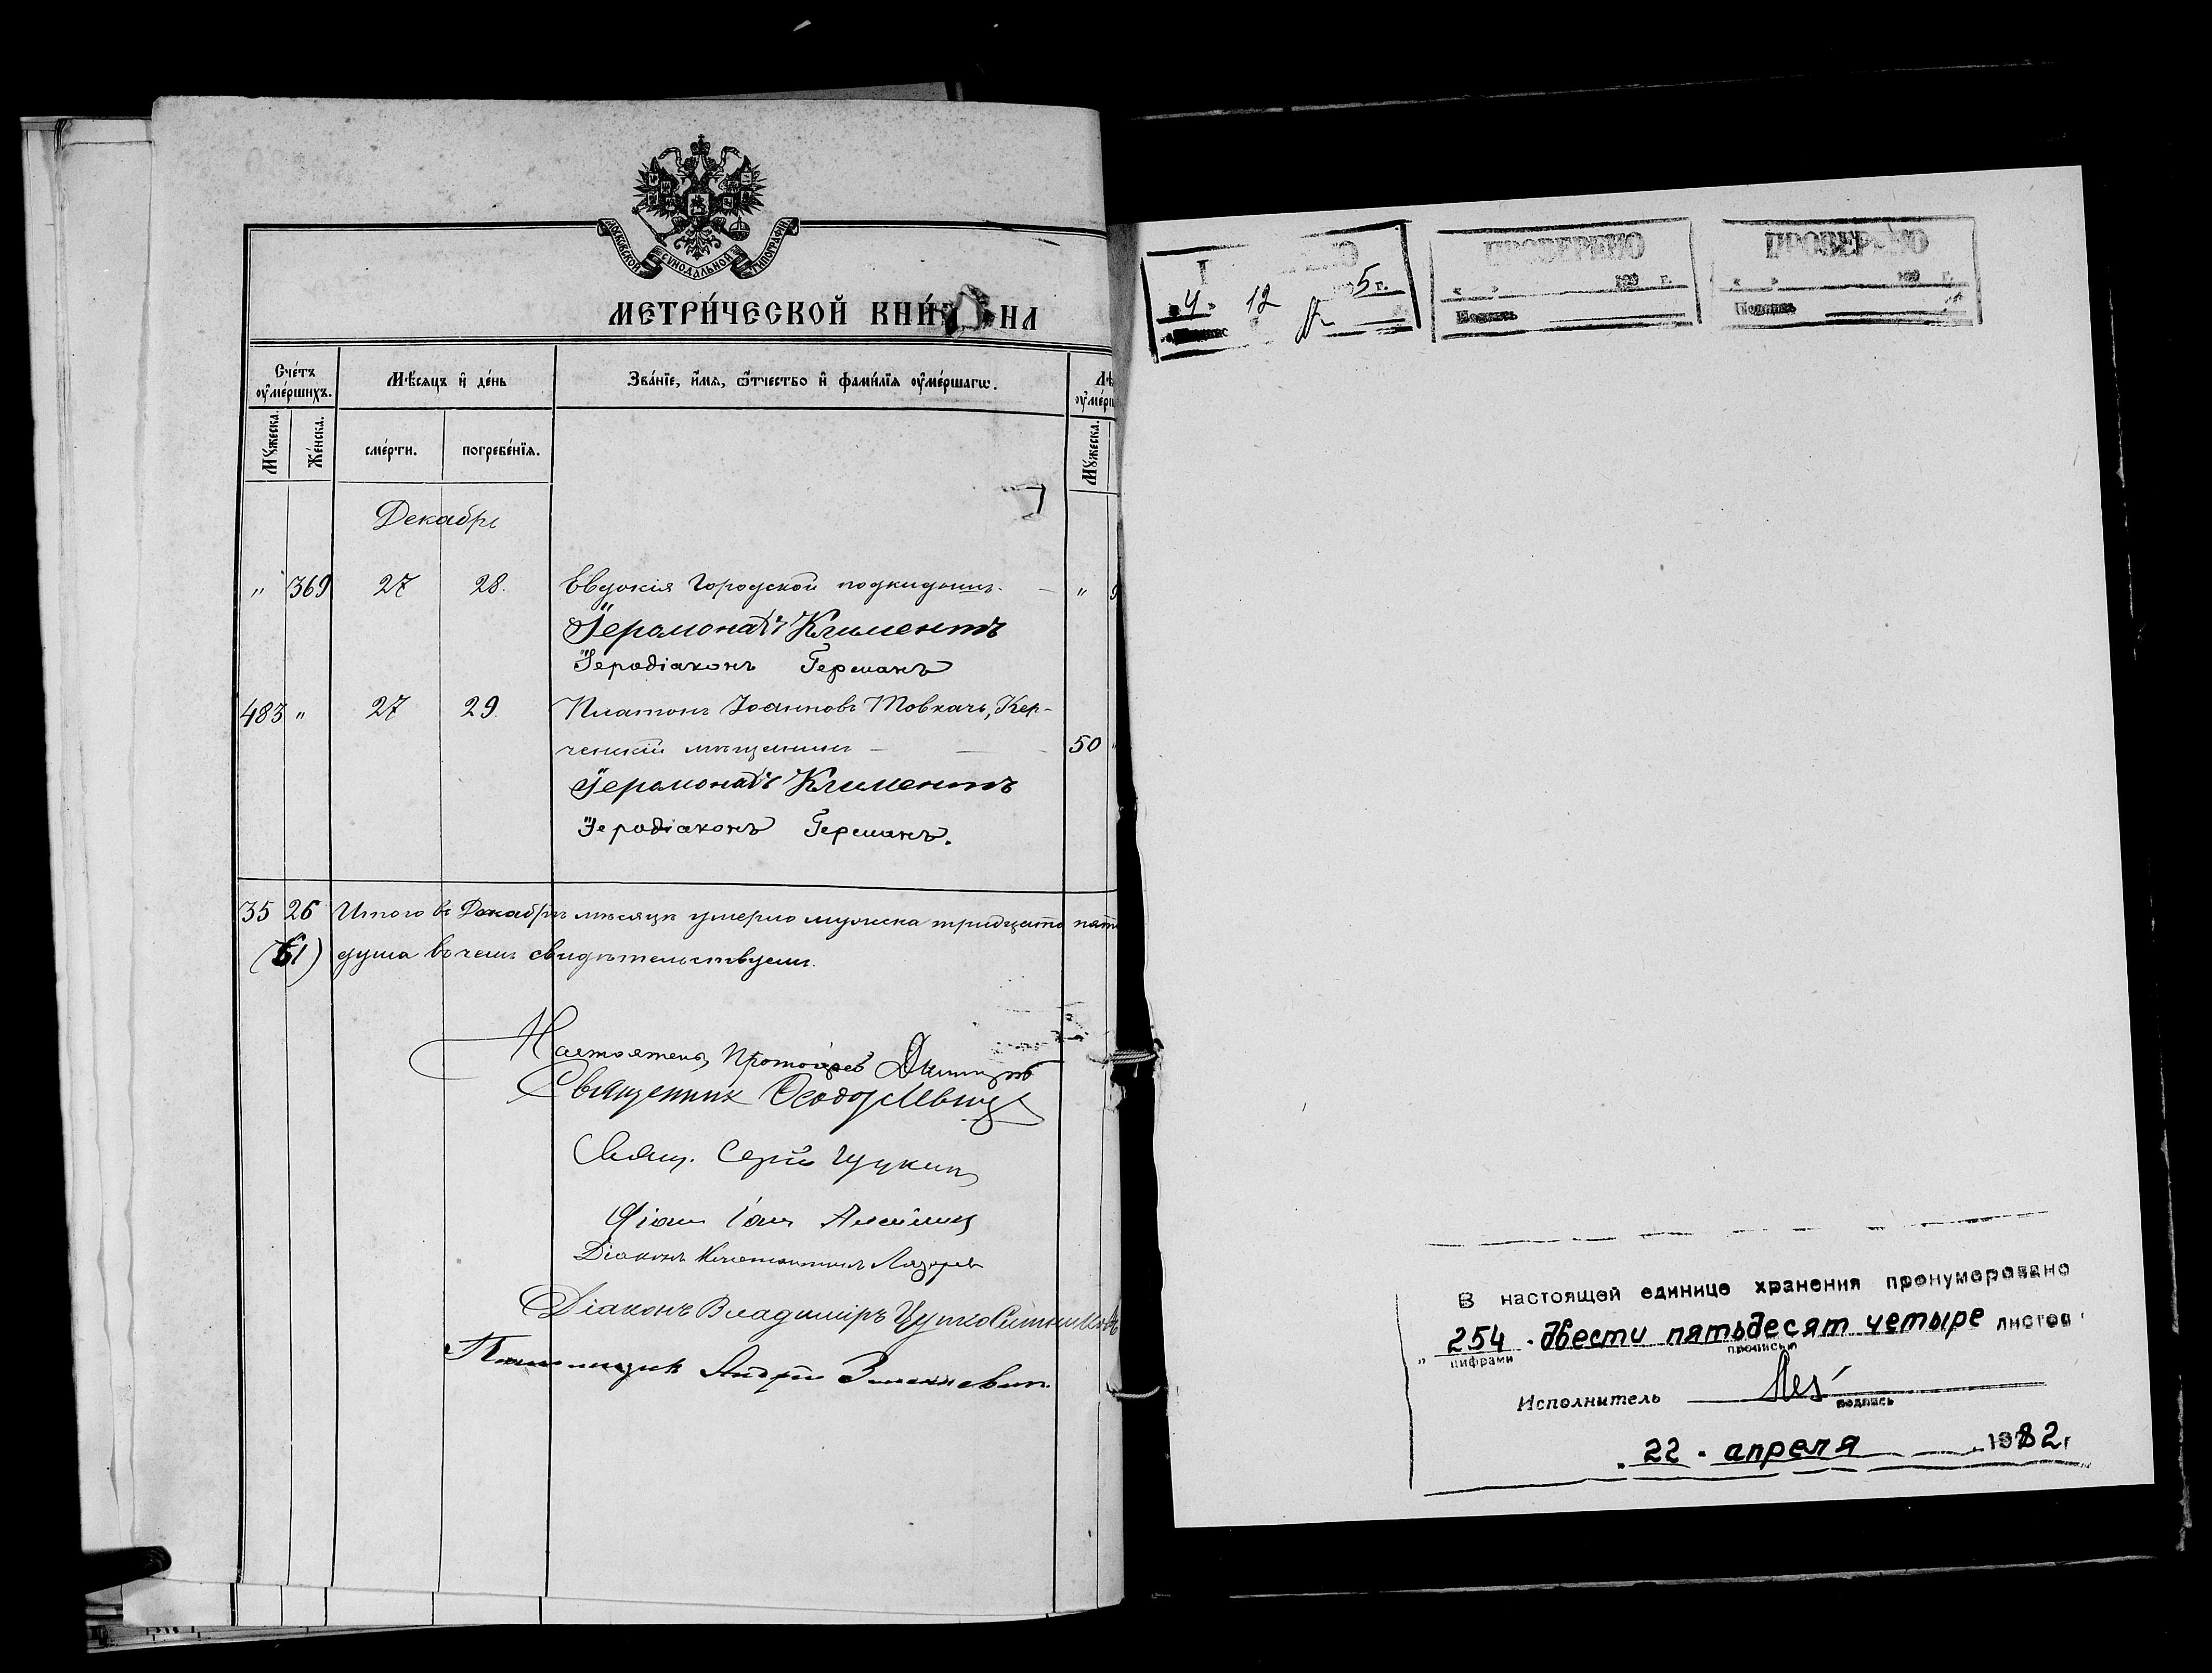 МОСКОВСКОЙ СѴНОДАЛЬНОЙ ТИПОГРАФІИ
МЕТРИ́ЧЕСКОЙ КНИ́ НА
Сче́тъ ᲂу҆ме́ршихъ.
Мѣ́сяцъ и҆ де́нь
Зва́нїе, и҆́мя, ѻ҆́тчество и҆ фами́лїя ᲂу҆ме́ршагѡ.
Мꙋ́жеска.
Же́нска.
сме́рти.
погребе́нїя.
Мꙋ́жеска.
Декабрь
" 369 27 28. Евдокія Городской подкидышъ. — "
Іеромонахъ Климентъ
Іеродіаконъ Германъ
483 " 27 29. Платонъ Іоанновъ Товкачъ, Кер-
ченскій мѣщанинъ — — 50
Іеромонахъ Климентъ
Іеродіаконъ Германъ.
35 26 Итого въ Декабрѣ мѣсяцѣ умерло мужеска тридцать
(61) душа въ чемъ свидѣтельствуемъ.
Настоятель, Протоіерей
Священник Ѳеодор
Свящ. Сергій Щукинъ
Діаконъ Константинъ Лазаревъ
Діаконъ Владиміръ
Псаломщик Андрей
4 12 5 г.
ПРОВЕРЕНО
« » 199 г.
Подпись
ПРОВЕРЕНО
« » 199 г.
Подпись
В настоящей единице хранения пронумеровано
„ 254 - двести пятьдесят четыре листов
цифрами прописью
Исполнитель
подпись
„ 22 " апреля 1982 г